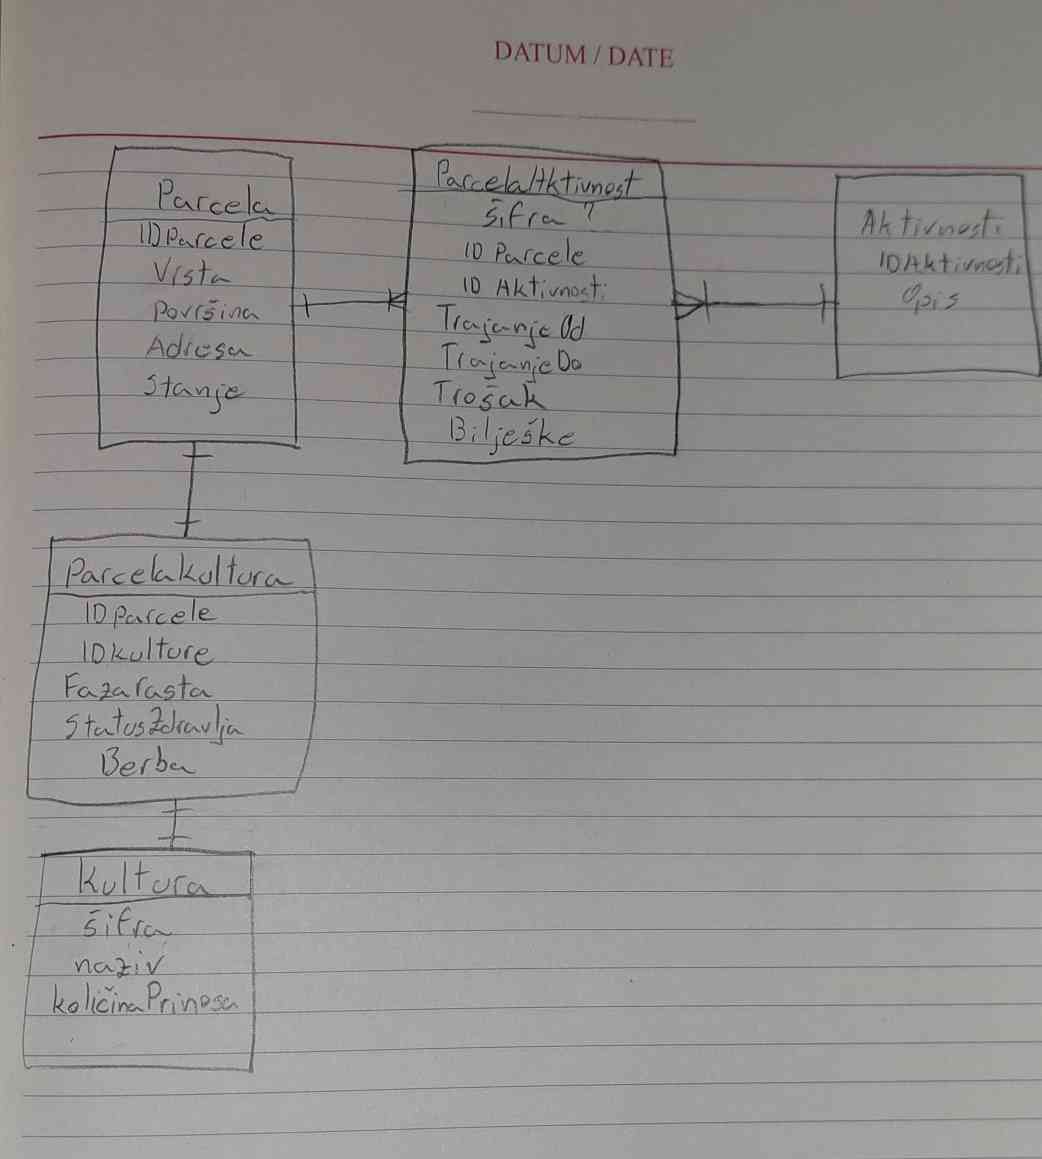 DATUM / DATE
Parcela
IDParcele
Vrsta
površina
Adresa
Stanje
ParcelaAktivnost
šifra ?
ID Parcele
ID Aktivnosti
TrajanjeOd
TrajanjeDo
Trošak
Bilješke
Aktivnosti
IDAktivnosti
Opis
ParcelaKultura
IDParcele
IDKulture
FazaRasta
StatusZdravlja
Berba
Kultura
šifra
naziv
količinaPrinosa